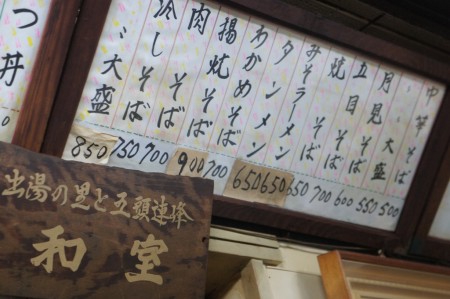 中華そば 500
〃大盛 550
月見そば 600
五目そば 700
焼そば 650
みそラーメン 650
タンメン 650
わかめそば 700
揚焼そば 900
肉そば 700
冷しそば 750
〃大盛 850
つ丼
出湯の里と五頭連峰
和室